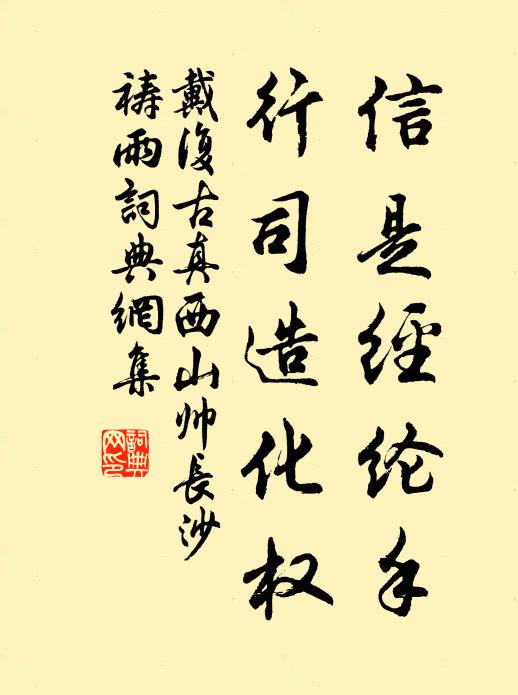 信是經纶手
行司造化权
戴復古真西山帅長沙
祷雨詞典網集
詞典
网印